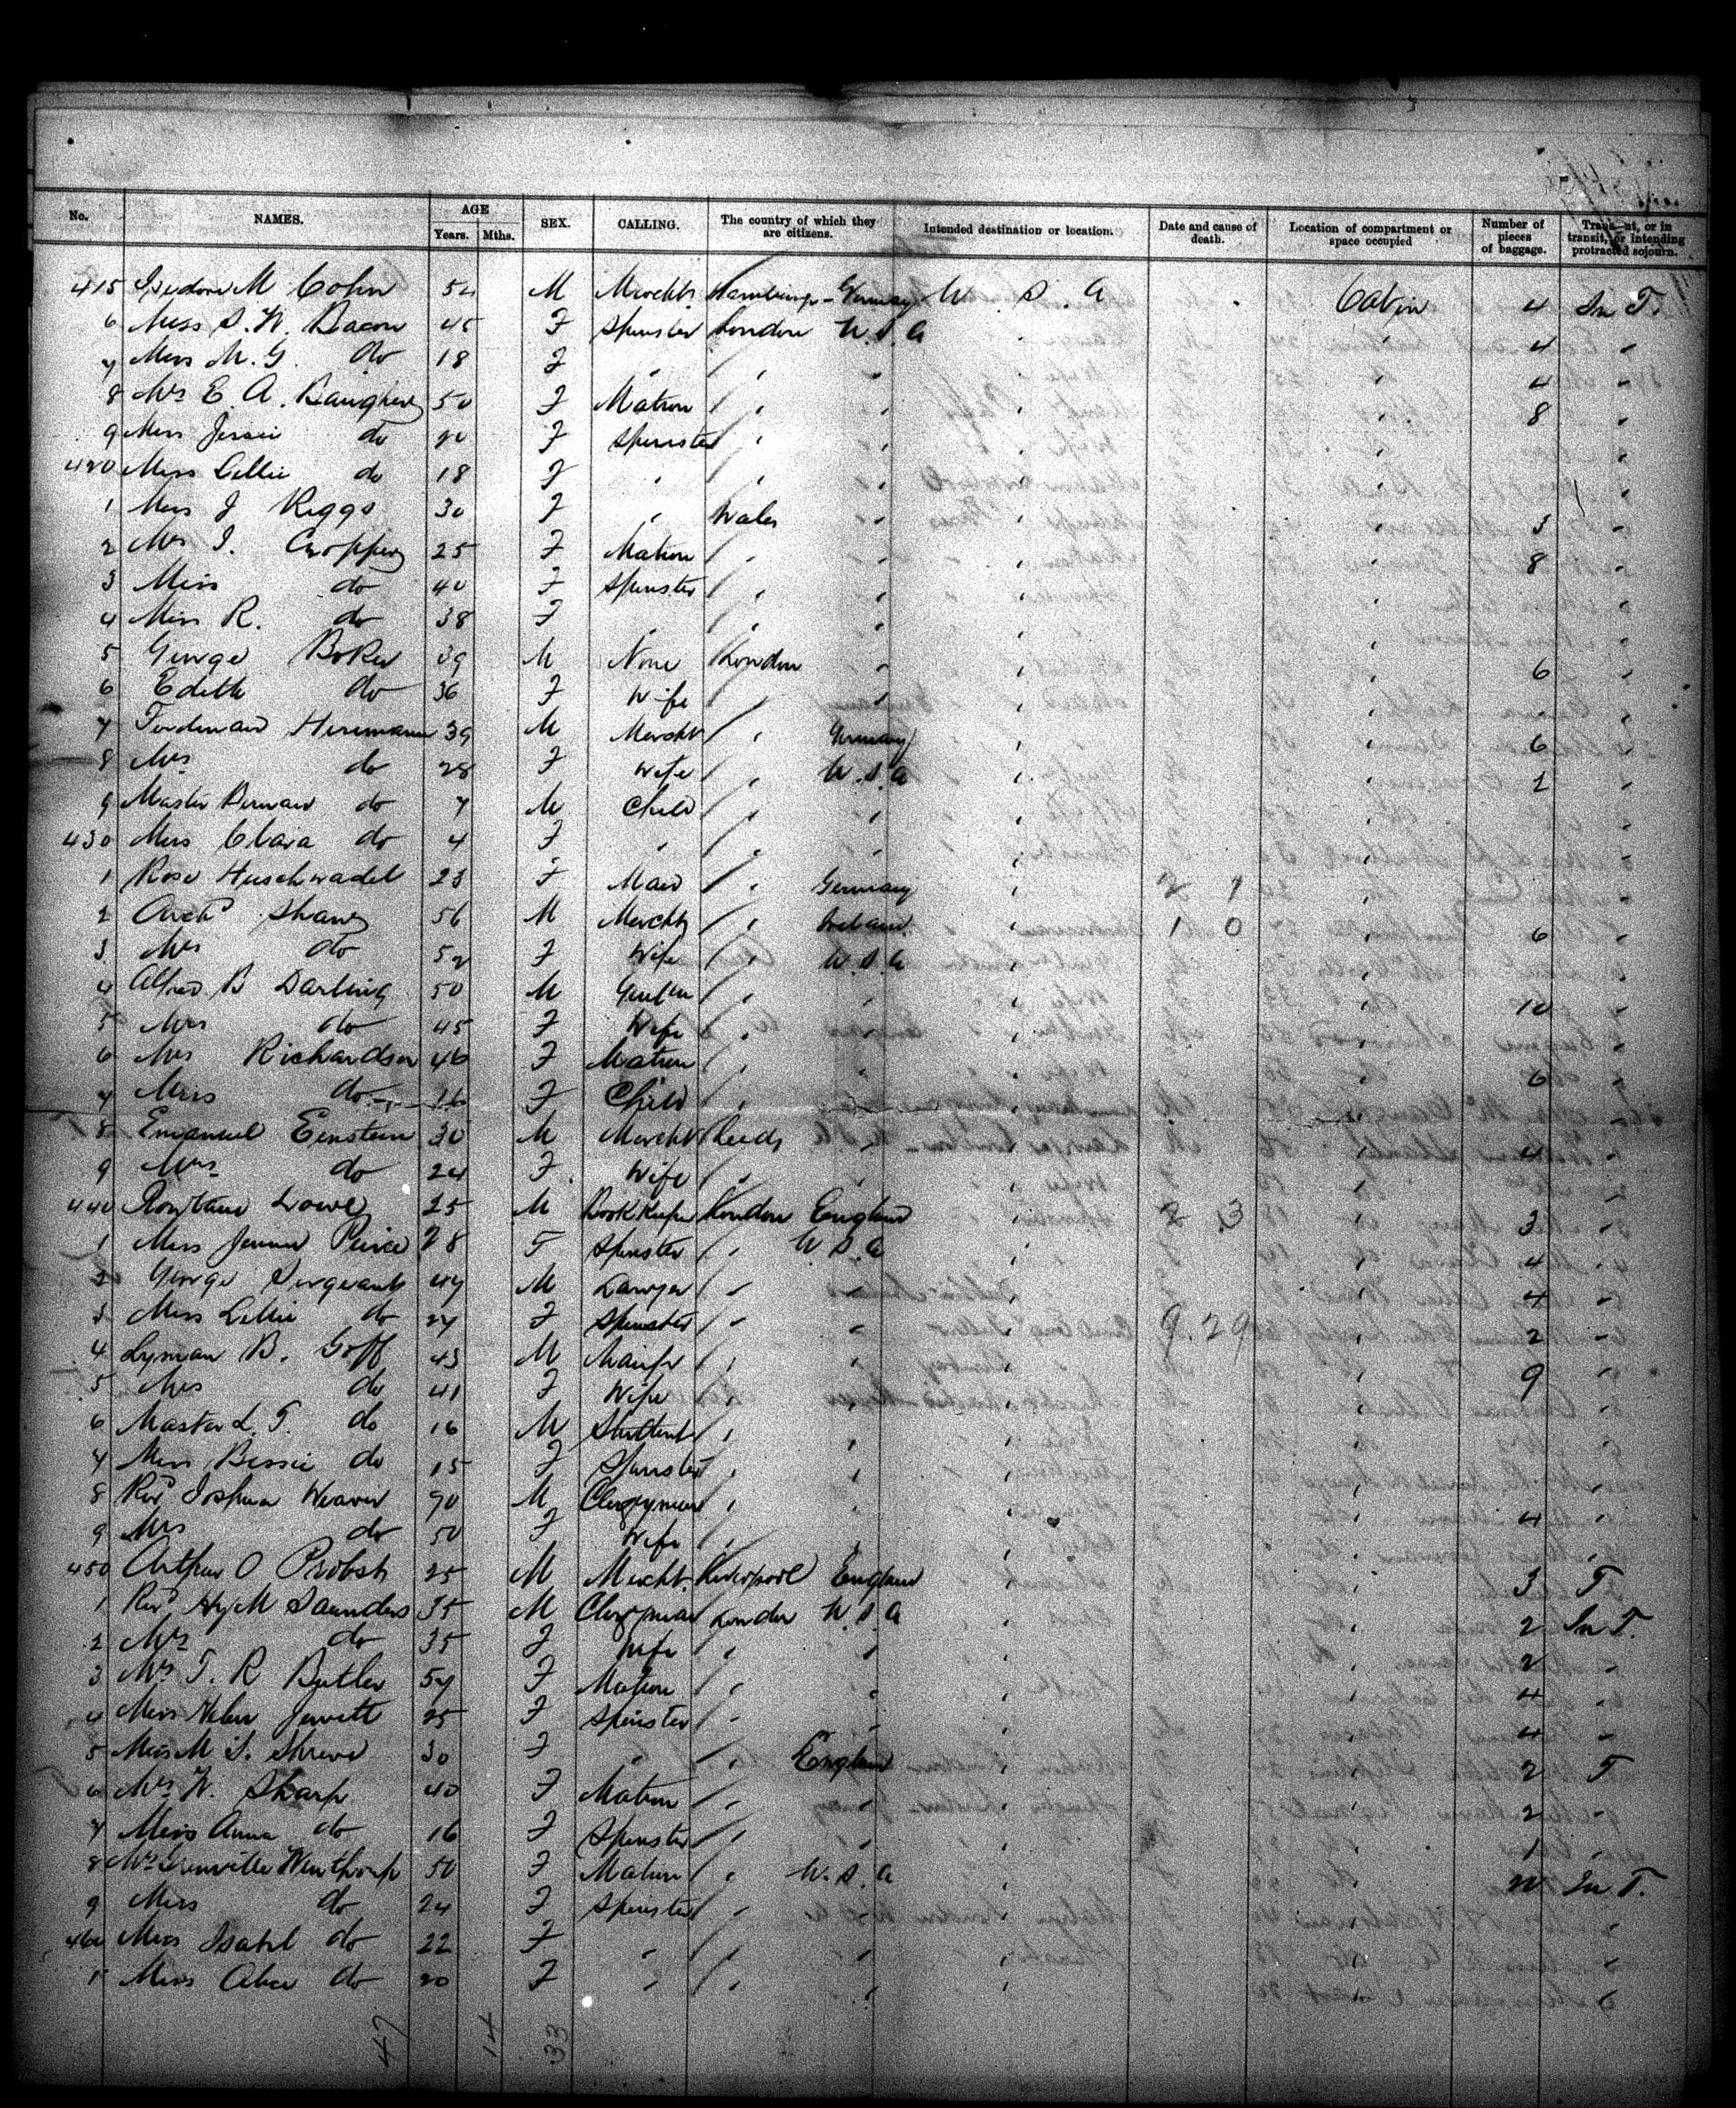 No. NAMES. AGE Years. Mths. SEX. CALLING. The country of which they are citizens. Intended destination or location. Date and cause of death. Location of compartment or space occupied Number of pieces of baggage. Transient, or in transit, or intending protracted sojourn.
415 Isidore M Cohn M Mercht Hamburg - Germany U S. A Cabin 4 In T.
6 Miss S. W. Bacon 45 F Spinster London U.S.A 4 "
7 Miss M. G. do 18 F " " " " 4 "
8 Mrs E. A. 50 F Matron " " " 8 "
9 Miss Jessie do 20 F Spinster " " "
420 Miss Lillie do 18 F " " " "
1 Miss J Riggs 30 F " Wales " " 3 "
2 Mrs J. Cropper 25 F Matron " " " 8 "
3 Miss do 40 F Spinster " " "
4 Miss R. do 38 F " " " "
5 George Boker 39 M None London " " 6 "
6 Edith do 36 F Wife " " "
7 Ferdinand Herrmann 39 M Mercht " Germany " 6 "
8 Mrs do 28 F Wife " U.S.A " 2 "
9 Master Bernard do 7 M Child " " "
430 Miss Clara do 4 F " " " "
1 Rose Huschwadel 23 F Maid " Germany " 2 7
2 Archd Shaw 56 M Mercht " Ireland " 1 0 6 "
3 Mrs do 52 F Wife " U.S.A "
4 Alfred B Darling 50 M Gentn " " " 10 "
5 Mrs do 45 F Wife " " "
6 Mrs Richardson 46 F Matron " " " 6 "
7 Miss do 16 F Child " " "
8 Emanuel Einstein 30 M Mercht Leeds " " 4 "
9 Mrs do 24 F Wife " " "
440 Lowe 25 M Book Keeper London England " 2 3 3 "
1 Miss Jennie Peirce 28 F Spinster " U S. A " 4 "
2 George Sergeant 47 M Lawyer " " " 4 "
3 Miss Lillie do 27 F Spinster " " " 9.29 2 "
4 Lyman B. Goff 43 M Manfr " " " 9 "
5 Mrs do 41 F Wife " " "
6 Master L. T. do 16 M Student " " "
7 Miss Bessie do 15 F Spinster " " "
8 Revd Joshua Weaver M Clergyman " " " 4 "
9 Mrs do 50 F Wife " " "
450 Arthur O Probst 25 M Mercht. Liverpool England " 3 T
1 Revd Hy M Saunders 35 M Clergyman London U.S.A " 2 In T.
2 Mrs do 35 F Wife " " " 2 "
3 Mrs T. R Butler 57 F Matron " " " 4 "
4 Miss Helen Jewett 25 F Spinster " " " 4 "
5 Miss M S. Shreve 30 F " " England " 2 T
6 Mrs W. Sharp 40 F Matron " " " 2 "
7 Miss Anna do 16 F Spinster " " " 1 "
8 Mrs Grenville Winthrop 50 F Matron " U.S.A " In T.
9 Miss do 24 F Spinster " " "
460 Miss Isabel do 22 F " " " "
1 Miss Alice do 20 F " " " "
47 14 33